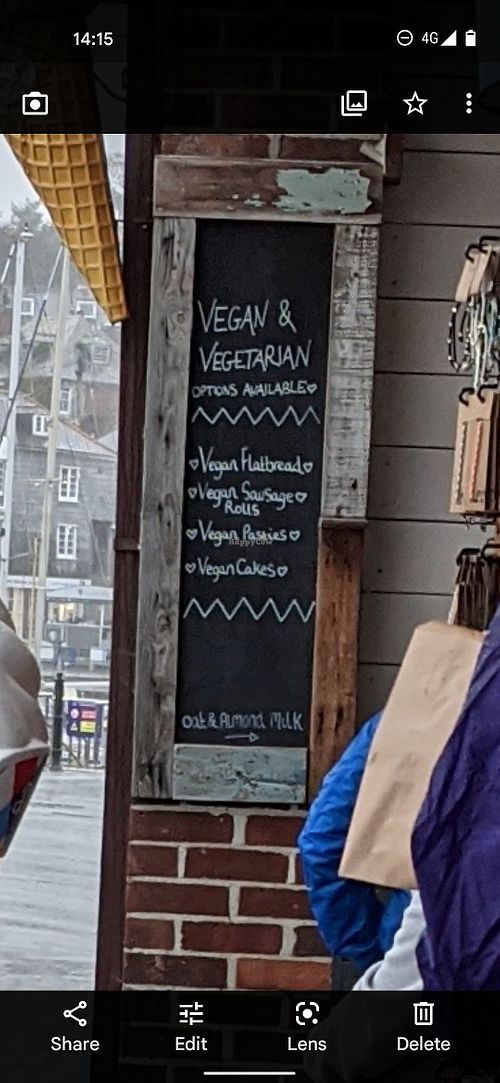 14:15
4G
VEGAN &
VEGETARIAN
OPTIONS AVAILABLE♡
♡Vegan Flatbread♡
♡Vegan Sausage♡
Rolls
♡Vegan Pasties♡
HappyCow
♡Vegan Cakes♡
Oat & Almond Milk
→
Share
Edit
Lens
Delete